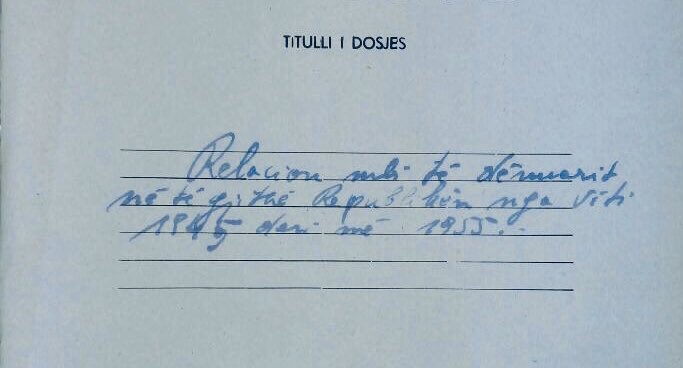 TITULLI I DOSJES
Relacion mbi të dënuarit
në të gjithë Republikën nga viti
1945 deri më 1955.-